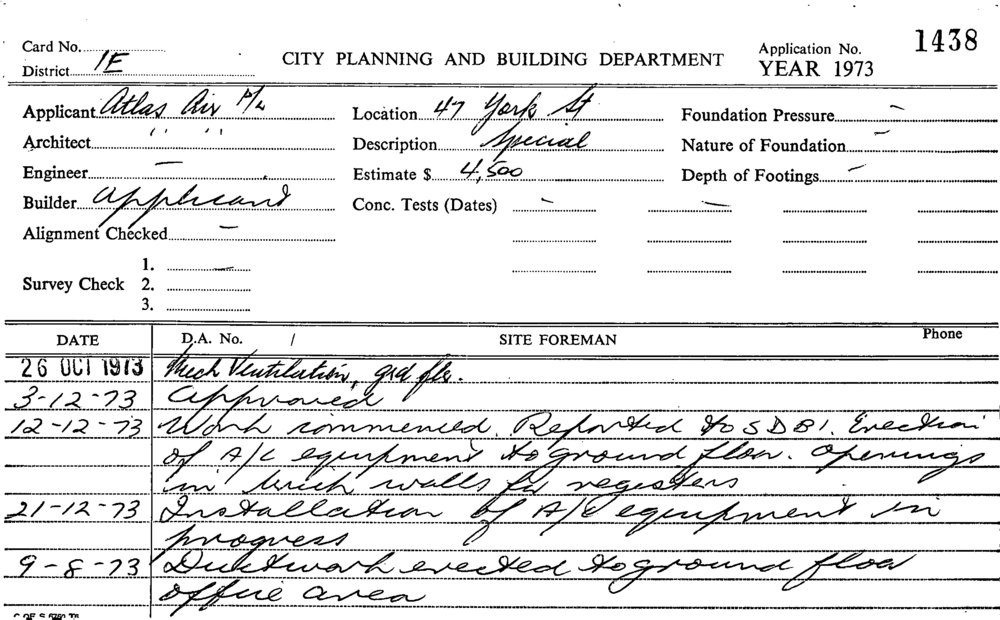 Card No.
District 1E
CITY PLANNING AND BUILDING DEPARTMENT
Application No. 1438
YEAR 1973
Applicant Atlas Air P/L
Location 47 York St
Foundation Pressure —
Architect " "
Description Special
Nature of Foundation —
Engineer —
Estimate $ 4,500
Depth of Footings —
Builder Applicant
Conc. Tests (Dates) — —
Alignment Checked —
Survey Check
1. —
2.
3.
DATE D.A. No. / SITE FOREMAN Phone
26 OCT 1973 Mech Ventilation, grd flr.
3-12-73 Approved
12-12-73 Work commenced. Reported to SDBI. Erection
of A/C equipment to ground floor. Openings
in brick walls for registers
21-12-73 Installation of A/C equipment in
progress
9-8-73 Ductwork erected to ground floor
office area